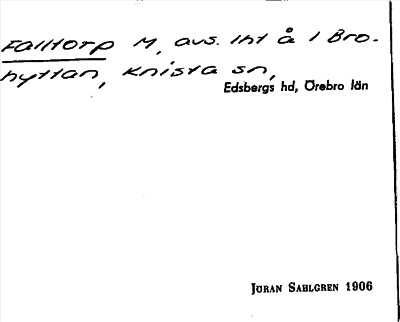 Falltorp M, avs. 1ht å 1 Bro-
hyttan, Knista sn,
Edsbergs hd, Örebro län
JÖRAN SAHLGREN 1906